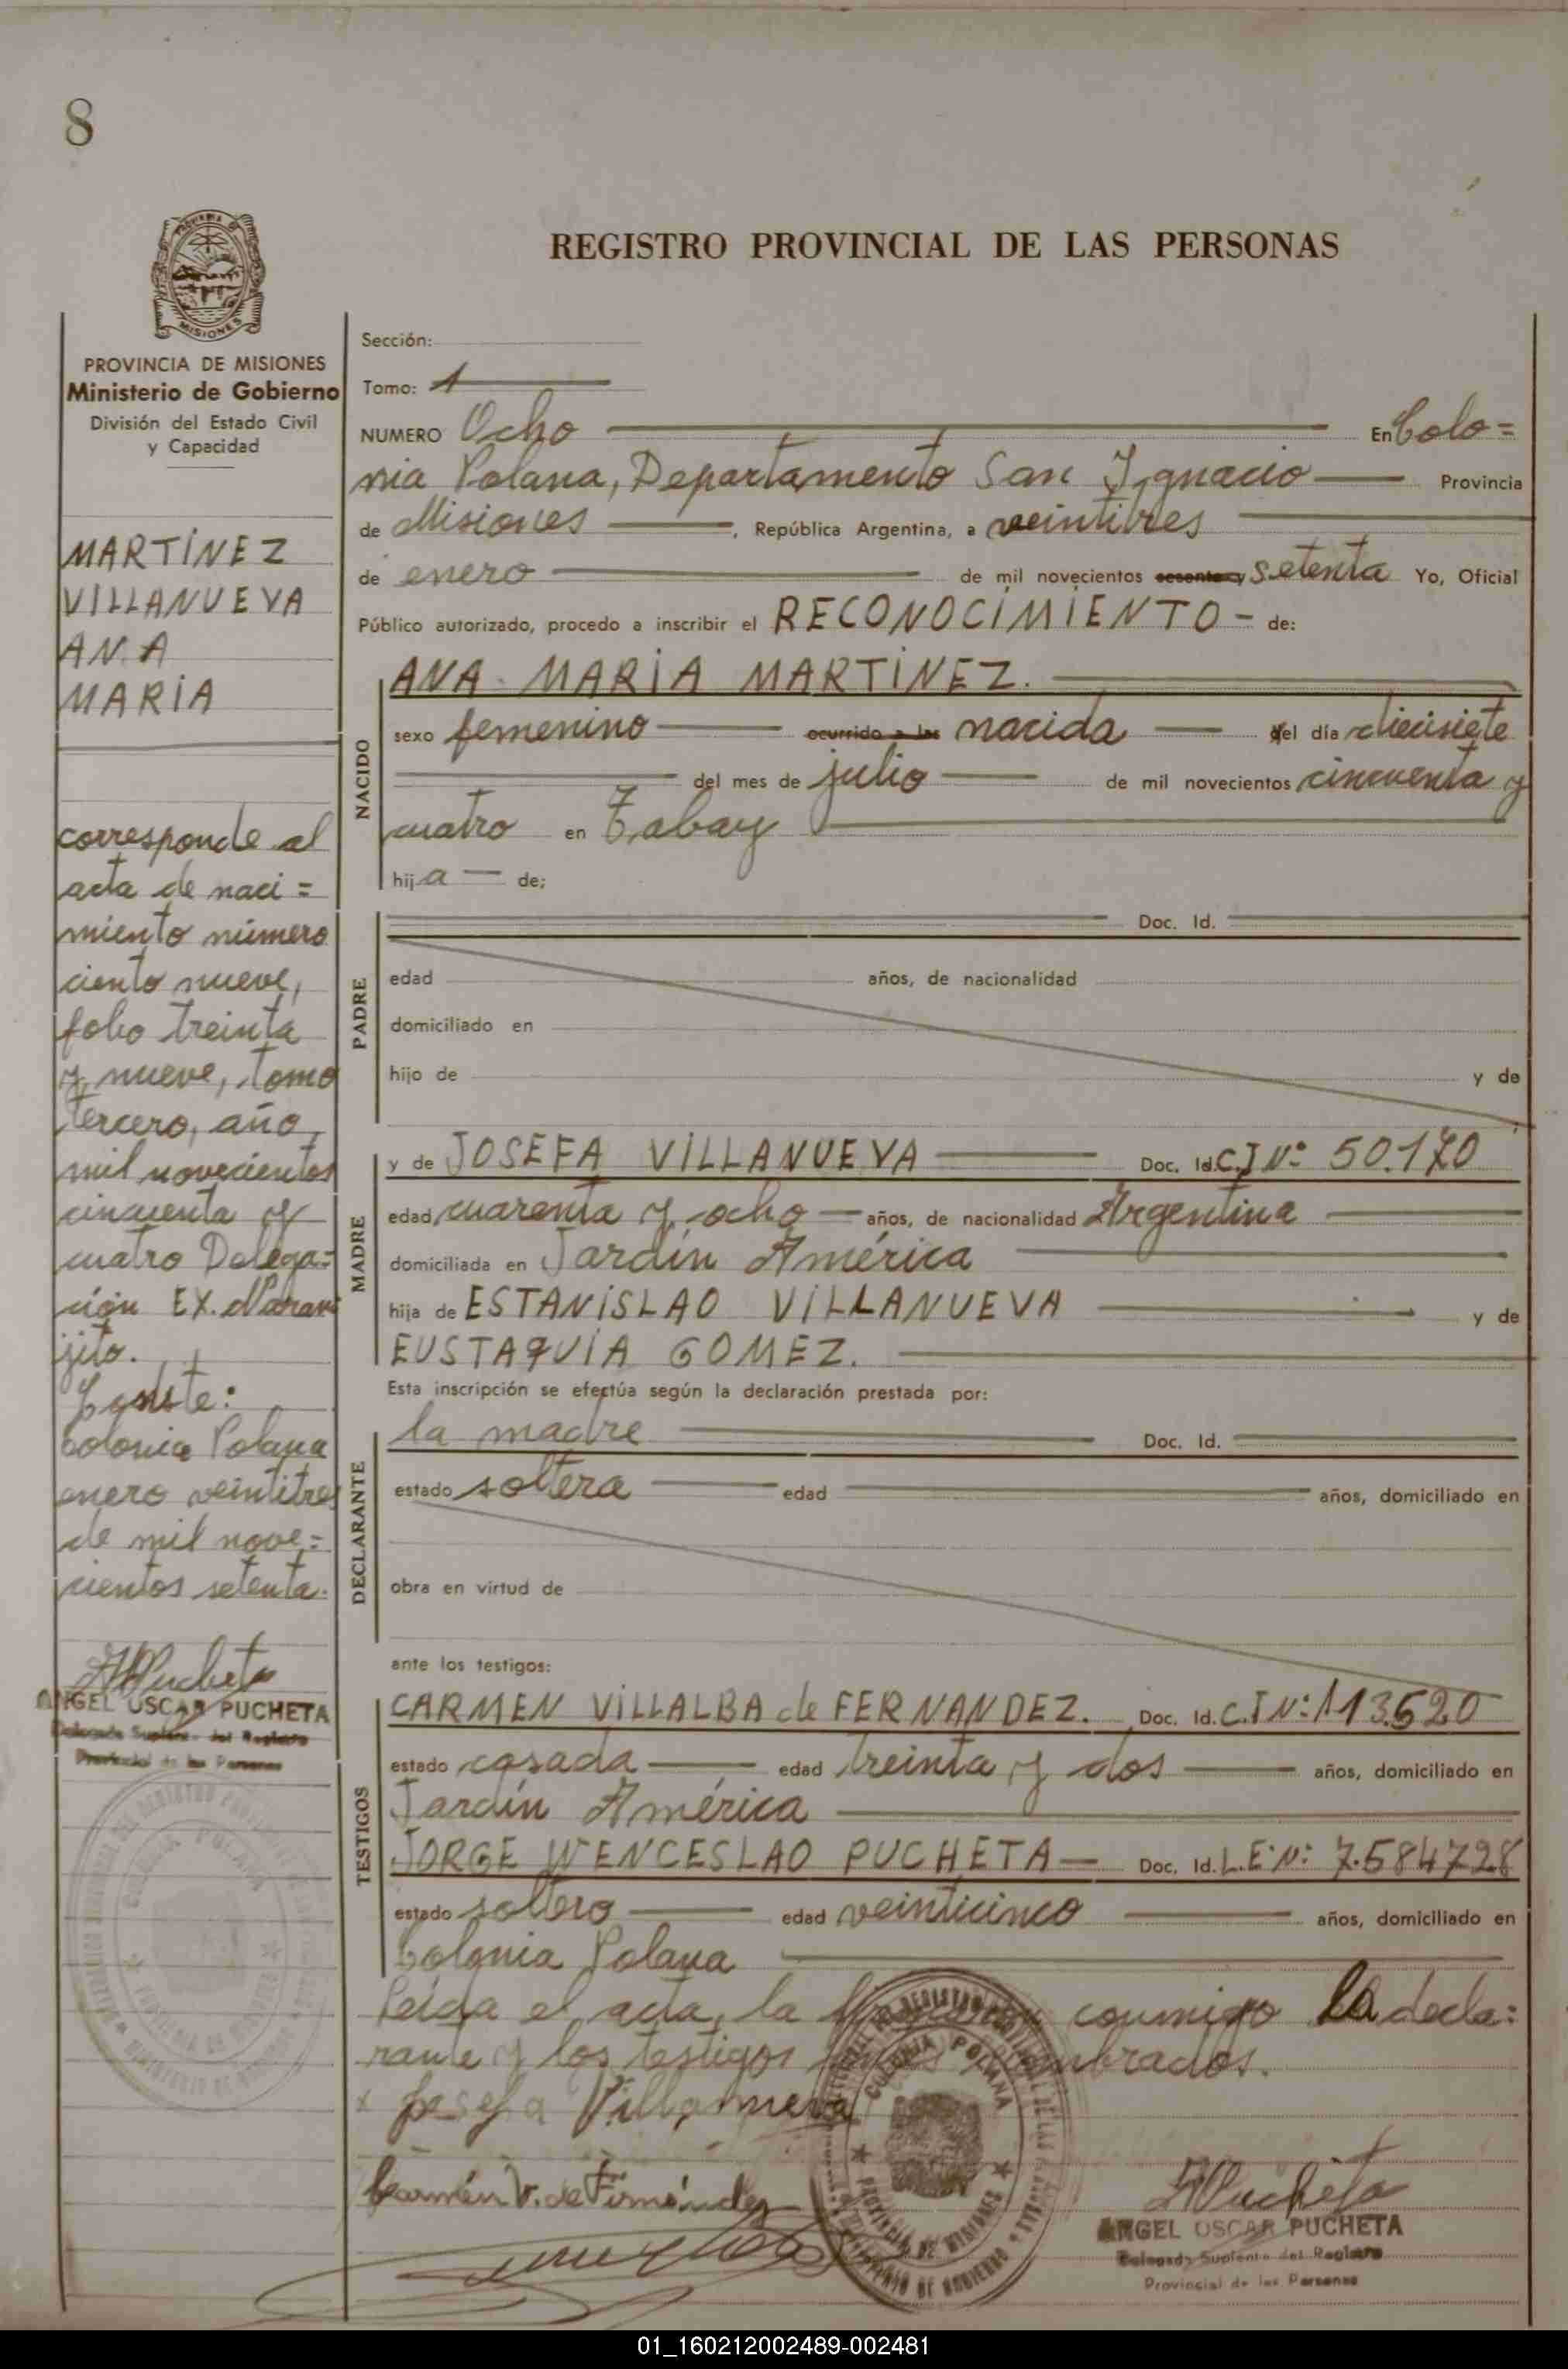 8
REGISTRO PROVINCIAL DE LAS PERSONAS
MISIONES
PROVINCIA DE MISIONES
Ministerio de Gobierno
División del Estado Civil
y Capacidad
MARTÍNEZ
VILLANUEVA
ANA
MARÍA
corresponde al
acta de naci=
miento número
ciento nueve,
folio treinta
y nueve, tomo
tercero, año
mil novecientos
cincuenta y
cuatro Delega=
ción EX. Naran
jito.
Conste:
Colonia Polana
enero veintitres
de mil nove=
cientos setenta.
ANGEL OSCAR PUCHETA
Delegado Suplente del Registro
Provincial de las Personas
Sección:
Tomo: 1
NUMERO Ocho En Colo=
nia Polana, Departamento San Ignacio Provincia
de Misiones, República Argentina, a veintitres
de enero de mil novecientos sesenta y setenta Yo, Oficial
Público autorizado, procedo a inscribir el RECONOCIMIENTO - de:
NACIDO
ANA MARÍA MARTÍNEZ.
sexo femenino ocurrido a las nacida el día diecisiete
del mes de julio de mil novecientos cincuenta y
cuatro en Tabay
hija de;
PADRE
Doc. Id.
edad años, de nacionalidad
domiciliado en
hijo de y de
MADRE
y de JOSEFA VILLANUEVA Doc. Id. C.I Nº 50.170
edad cuarenta y ocho años, de nacionalidad Argentina
domiciliada en Jardín América
hija de ESTANISLAO VILLANUEVA y de
EUSTAQUIA GOMEZ.
Esta inscripción se efectúa según la declaración prestada por:
DECLARANTE
la madre Doc. Id.
estado soltera edad años, domiciliado en
obra en virtud de
ante los testigos:
TESTIGOS
CARMEN VILLALBA de FERNANDEZ. Doc. Id. C.I Nº: 113.520
estado casada edad treinta y dos años, domiciliado en
Jardín América
JORGE WENCESLAO PUCHETA Doc. Id. L.E. Nº: 7.584728
estado soltero edad veinticinco años, domiciliado en
Colonia Polana
Leída el acta, la conmigo la decla=
rante y los testigos nombrados.
x Josefa Villanueva
Carmén V. de Fernández
COLONIA POLANA
PROVINCIA DE MISIONES
MINISTERIO DE GOBIERNO
ANGEL OSCAR PUCHETA
Delegado Suplente del Registro
Provincial de las Personas
01_160212002489-002481